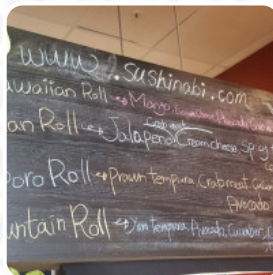 www.sushinabi.com
awaiian Roll Mango,
an Roll Jalapeno, Creamcheese, Sp
oro Roll Prawn tempura, Crabmeat, Cucu
Avocado
untain Roll Yam tempura, Avocado, Cucumber,